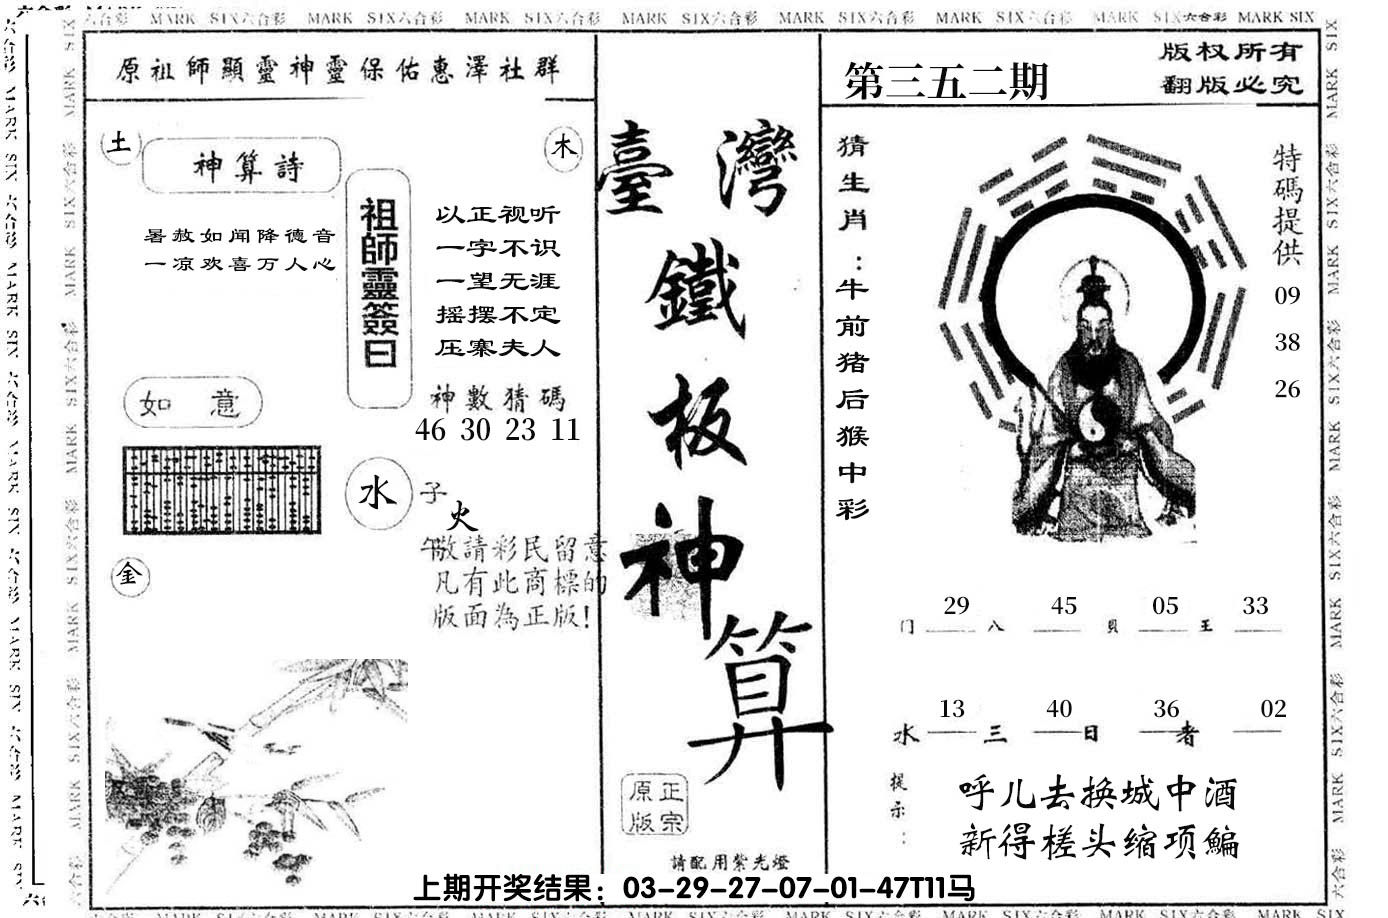 原祖師顯靈神靈保佑惠澤社群
土
神算詩
木
暑赦如闻降德音
一凉欢喜万人心
祖師靈簽曰
以正视听
一字不识
一望无涯
摇摆不定
压寨夫人
神數猜碼
46 30 23 11
如意
水
子
火
午
金
敬請彩民留意
凡有此商標的
版面為正版!
臺灣
鐵
板
神
算
正宗
原版
請配用紫光燈
第三五二期
版权所有
翻版必究
猜生肖:牛前猪后猴中彩
特碼提供
09
38
26
29 45 05 33
门 八 貝 王
13 40 36 02
水 三 日 者
提示:
呼儿去换城中酒
新得槎头缩项鳊
上期开奖结果：03-29-27-07-01-47T11马
MARK SIX六合彩 MARK SIX六合彩 MARK SIX六合彩 MARK SIX六合彩